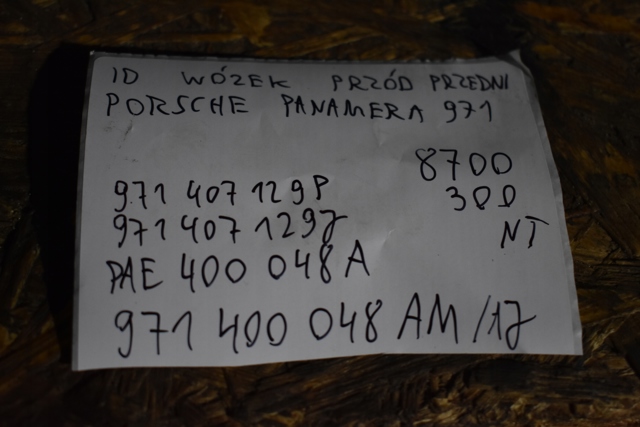 ID WÓZEK PRZÓD PRZEDNI
PORSCHE PANAMERA 971
8700
971 407 129P 300
971 407 129J NT
PAE 400 048 A
971 400 048 AM /17